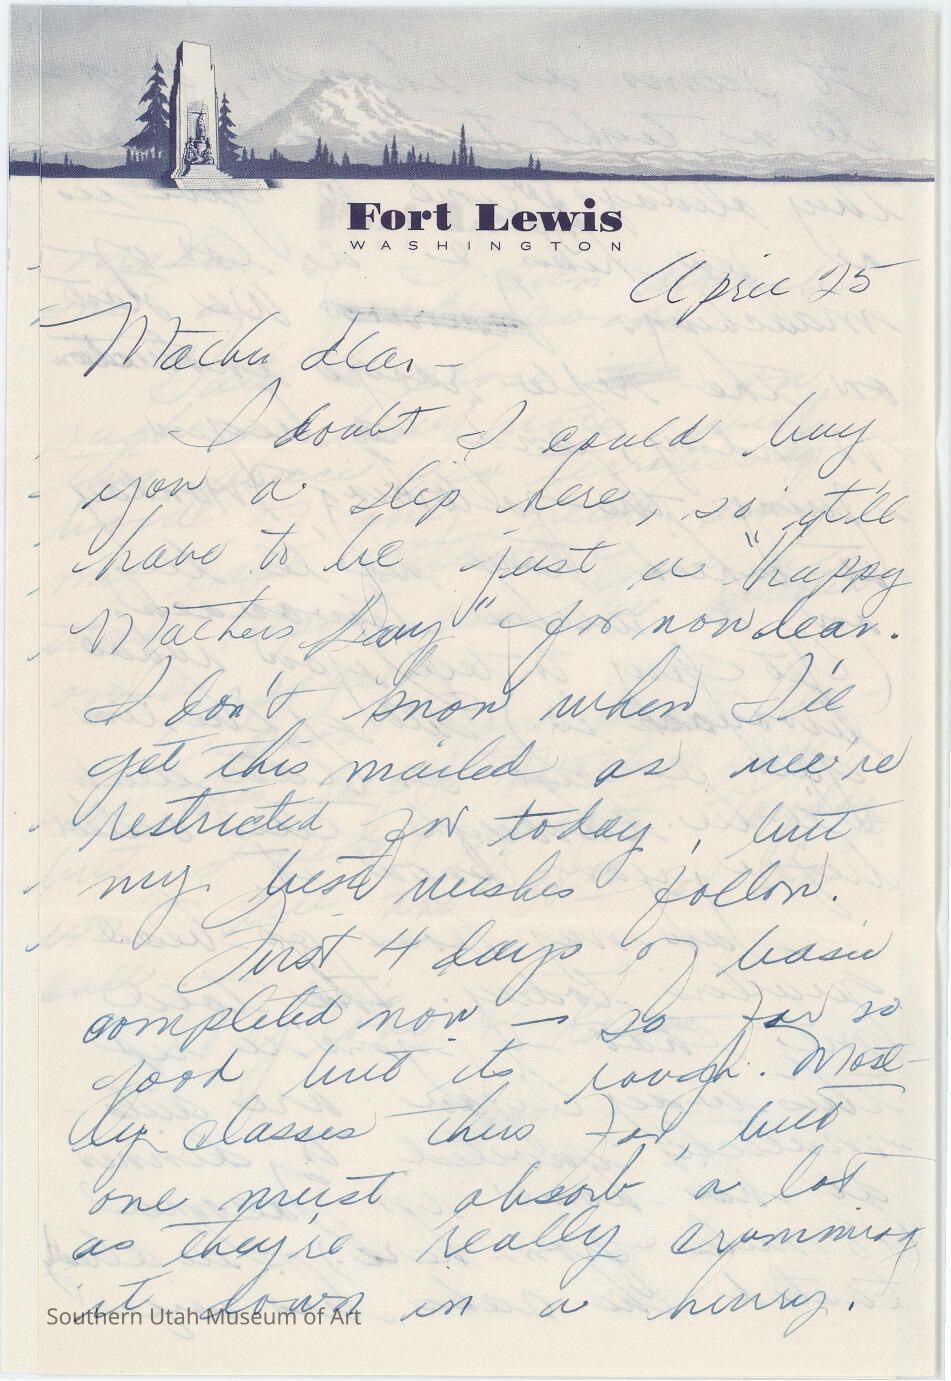 Fort Lewis
WASHINGTON
April 25
Mother dear -
I doubt I could buy
you a slip here, so it'll
have to be just a "happy
Mothers Day" for now dear.
I don't know when I'll
get this mailed as we're
restricted for today, but
my best wishes follow.
First 4 days of basic
completed now - so far so
good but its rough. Most-
ly classes thus far, but
one must absorb a lot
as they're really cramming
it down in a hurry.
Southern Utah Museum of Art